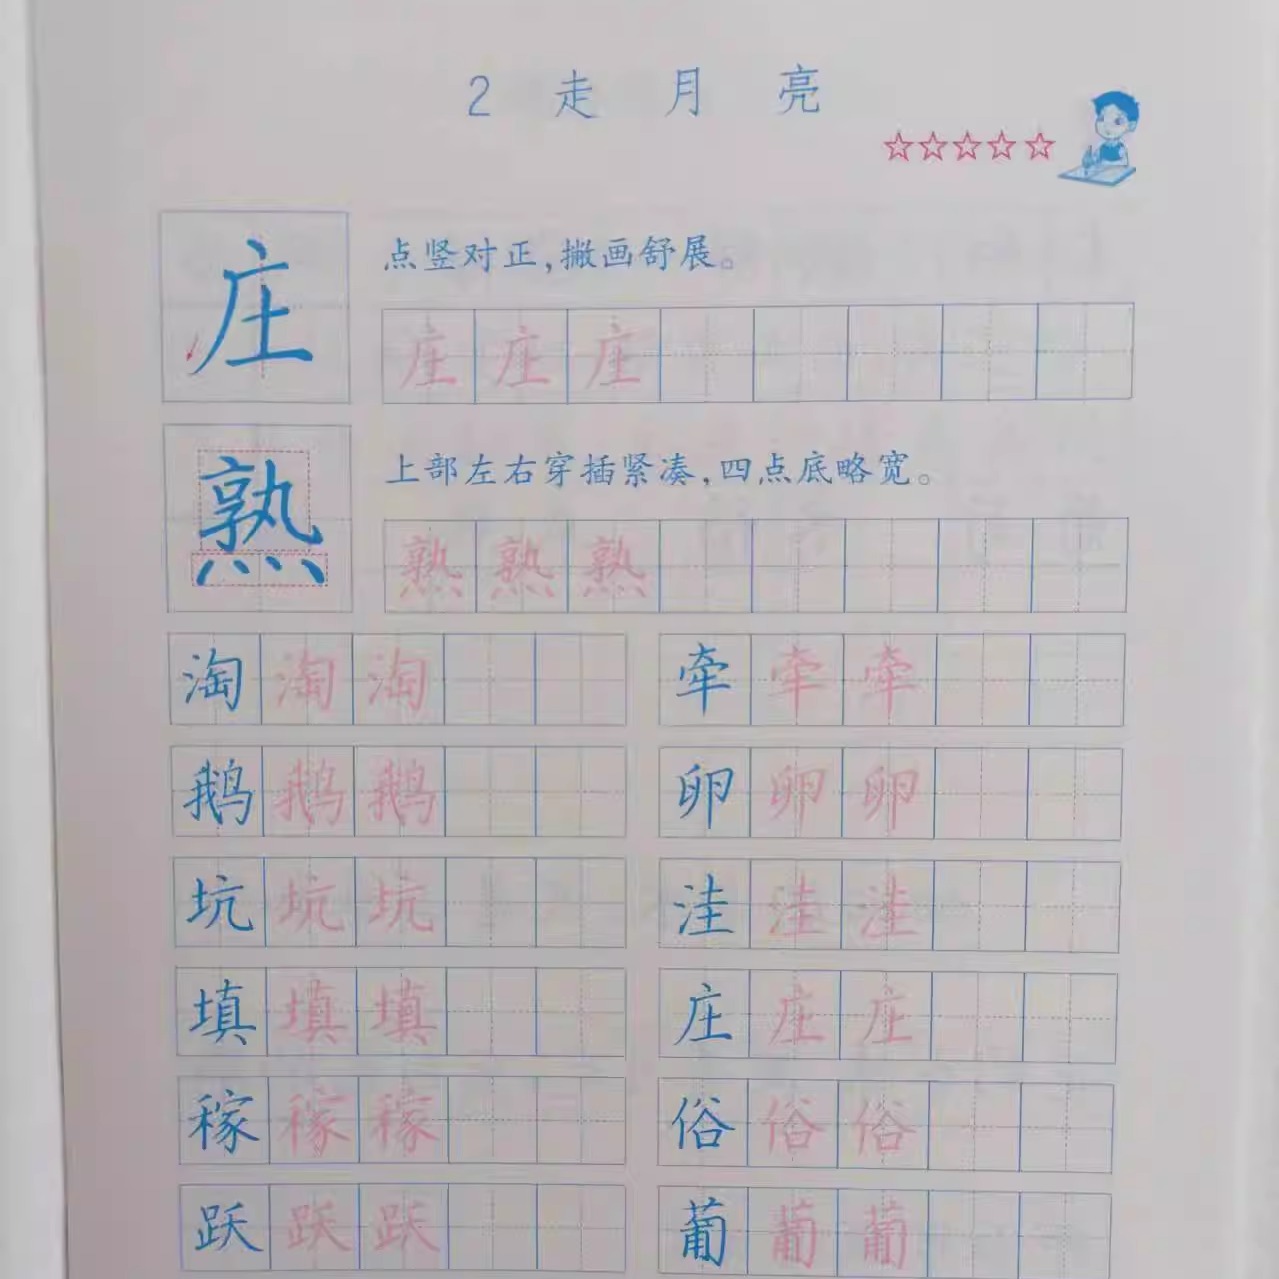 2 走月亮
庄 点竖对正,撇画舒展。
庄庄庄
熟 上部左右穿插紧凑,四点底略宽。
熟熟熟
淘淘淘 牵牵牵
鹅鹅鹅 卵卵卵
坑坑坑 洼洼洼
填填填 庄庄庄
稼稼稼 俗俗俗
跃跃跃 葡葡葡